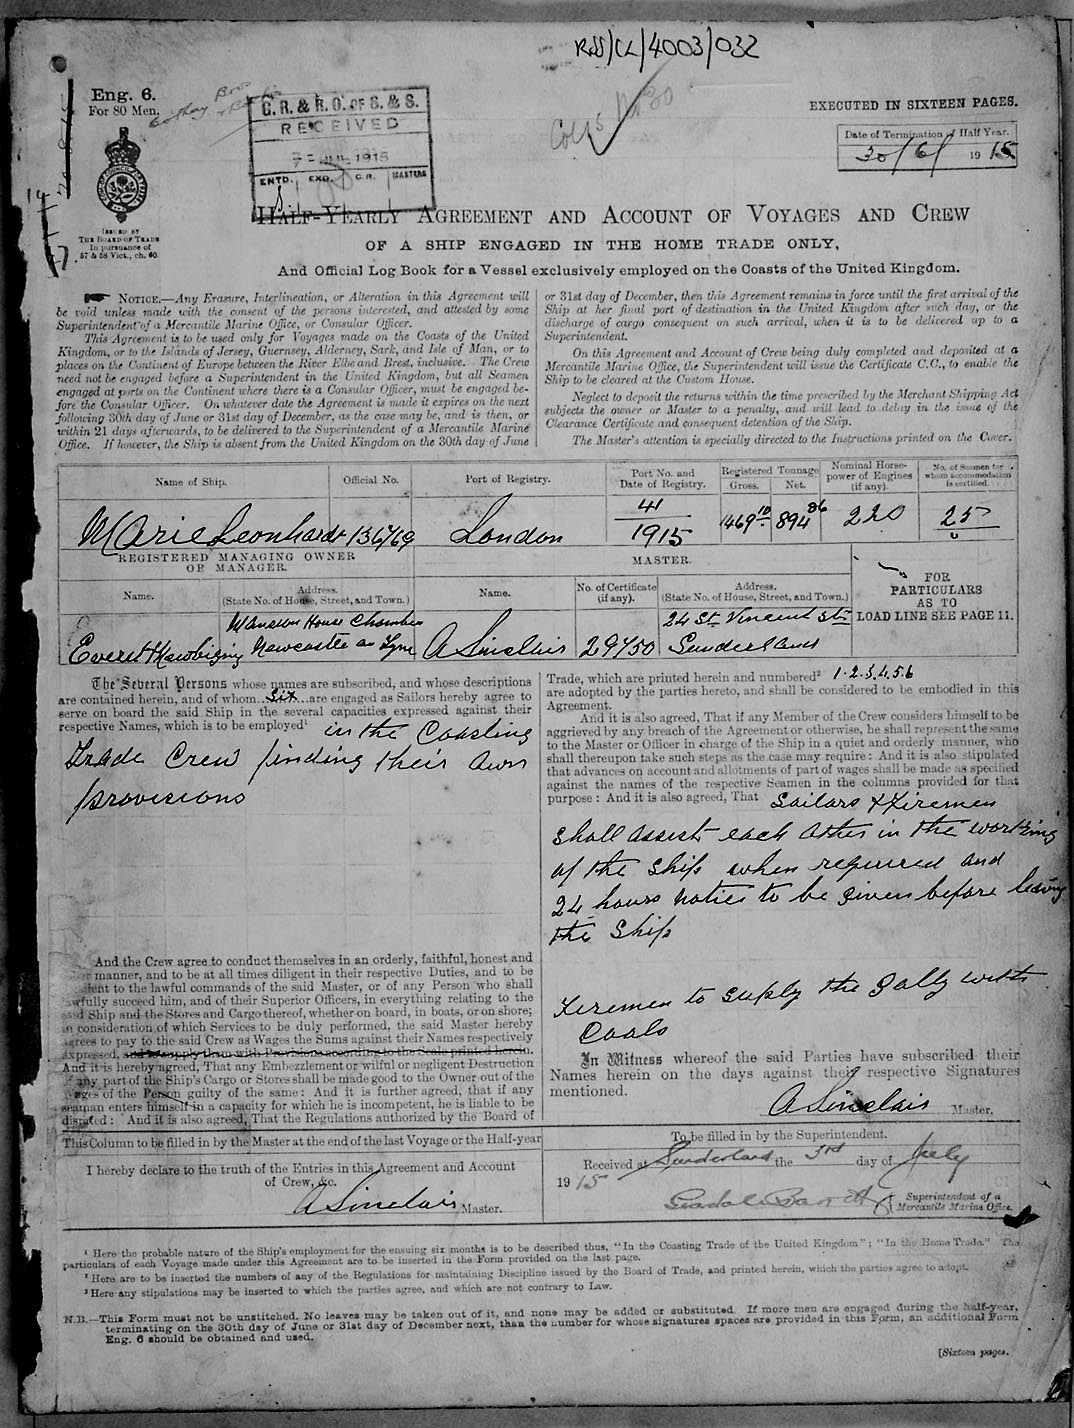 RSS/CL/4003/032
Eng. 6.
For 80 Men.
G.R. & R.O. OF S. & S.
RECEIVED
7 - JUL 1915
ENTD. EXD. C.R. MASTERS
EXECUTED IN SIXTEEN PAGES.
Date of Termination of Half Year.
30/6/ 1915
ISSUED BY
THE BOARD OF TRADE
In pursuance of
57 & 58 Vict., ch. 60.
HALF-YEARLY AGREEMENT AND ACCOUNT OF VOYAGES AND CREW
OF A SHIP ENGAGED IN THE HOME TRADE ONLY,
And Official Log Book for a Vessel exclusively employed on the Coasts of the United Kingdom.
NOTICE.—Any Erasure, Interlineation, or Alteration in this Agreement will
be void unless made with the consent of the persons interested, and attested by some
Superintendent of a Mercantile Marine Office, or Consular Officer.
This Agreement is to be used only for Voyages made on the Coasts of the United
Kingdom, or to the Islands of Jersey, Guernsey, Alderney, Sark, and Isle of Man, or to
places on the Continent of Europe between the River Elbe and Brest, inclusive. The Crew
need not be engaged before a Superintendent in the United Kingdom, but all Seamen
engaged at ports on the Continent where there is a Consular Officer, must be engaged be-
fore the Consular Officer. On whatever date the Agreement is made it expires on the next
following 30th day of June or 31st day of December, as the case may be, and is then, or
within 21 days afterwards, to be delivered to the Superintendent of a Mercantile Marine
Office. If however, the Ship is absent from the United Kingdom on the 30th day of June
or 31st day of December, then this Agreement remains in force until the first arrival of the
Ship at her final port of destination in the United Kingdom after such day, or the
discharge of cargo consequent on such arrival, when it is to be delivered up to a
Superintendent.
On this Agreement and Account of Crew being duly completed and deposited at a
Mercantile Marine Office, the Superintendent will issue the Certificate C.C., to enable the
Ship to be cleared at the Custom House.
Neglect to deposit the returns within the time prescribed by the Merchant Shipping Act
subjects the owner or Master to a penalty, and will lead to delay in the issue of the
Clearance Certificate and consequent detention of the Ship.
The Master's attention is specially directed to the Instructions printed on the Cover.
Name of Ship. Official No. Port of Registry. Port No. and Date of Registry. Registered Tonnage Gross. Net. Nominal Horse-power of Engines (if any). No. of Seamen for whom accommodation is certified.
Marie Leonhardt 136769 London 41/1915 1469.10 894.86 220 25
REGISTERED MANAGING OWNER
OR MANAGER.
MASTER.
Name. Address. (State No. of House, Street, and Town.) Name. No. of Certificate (if any). Address. (State No. of House, Street, and Town.)
FOR
PARTICULARS
AS TO
LOAD LINE SEE PAGE 11.
Mansion House Chambers 24 St. Vincent St.
Everett & Newbigin Newcastle on Tyne A Sinclair 29750 Sunderland
The Several Persons whose names are subscribed, and whose descriptions
are contained herein, and of whom Six are engaged as Sailors hereby agree to
serve on board the said Ship in the several capacities expressed against their
respective Names, which is to be employed¹ in the Coasting
Trade Crew finding their own
provisions
And the Crew agree to conduct themselves in an orderly, faithful, honest and
manner, and to be at all times diligent in their respective Duties, and to be
to the lawful commands of the said Master, or of any Person who shall
lawfully succeed him, and of their Superior Officers, in everything relating to the
said Ship and the Stores and Cargo thereof, whether on board, in boats, or on shore;
in consideration of which Services to be duly performed, the said Master hereby
agrees to pay to the said Crew as Wages the Sums against their Names respectively
expressed, and to supply them with Provisions according to the Scale printed herein.
And it is hereby agreed, That any Embezzlement or wilful or negligent Destruction
of any part of the Ship's Cargo or Stores shall be made good to the Owner out of the
Wages of the Person guilty of the same: And it is further agreed, that if any
seaman enters himself in a capacity for which he is incompetent, he is liable to be
disrated: And it is also agreed, That the Regulations authorized by the Board of
Trade, which are printed herein and numbered² 1.2.3.4.5.6
are adopted by the parties hereto, and shall be considered to be embodied in this
Agreement.
And it is also agreed, That if any Member of the Crew considers himself to be
aggrieved by any breach of the Agreement or otherwise, he shall represent the same
to the Master or Officer in charge of the Ship in a quiet and orderly manner, who
shall thereupon take such steps as the case may require: And it is also stipulated
that advances on account and allotments of part of wages shall be made as specified
against the names of the respective Seamen in the columns provided for that
purpose: And it is also agreed, That Sailors & Firemen
shall assist each other in the working
of the ship when required and
24 hours notice to be given before leaving
the Ship
Firemen to supply the Gally with
Coals
In Witness whereof the said Parties have subscribed their
Names herein on the days against their respective Signatures
mentioned.
A Sinclair Master.
This Column to be filled in by the Master at the end of the last Voyage or the Half-year
I hereby declare to the truth of the Entries in this Agreement and Account
of Crew, &c.
A Sinclair Master.
To be filled in by the Superintendent.
Received at Sunderland the 3rd day of July
1915
Superintendent of a
Mercantile Marine Office.
¹ Here the probable nature of the Ship's employment for the ensuing six months is to be described thus, "In the Coasting Trade of the United Kingdom"; "In the Home Trade." The
particulars of each Voyage made under this Agreement are to be inserted in the Form provided on the last page.
² Here are to be inserted the numbers of any of the Regulations for maintaining Discipline issued by the Board of Trade, and printed herein, which the parties agree to adopt.
³ Here any stipulations may be inserted to which the parties agree, and which are not contrary to Law.
N.B.—This Form must not be unstitched. No leaves may be taken out of it, and none may be added or substituted. If more men are engaged during the half-year,
terminating on the 30th day of June or 31st day of December next, than the number for whose signatures spaces are provided in this Form, an additional Form
Eng. 6 should be obtained and used.
[Sixteen pages.